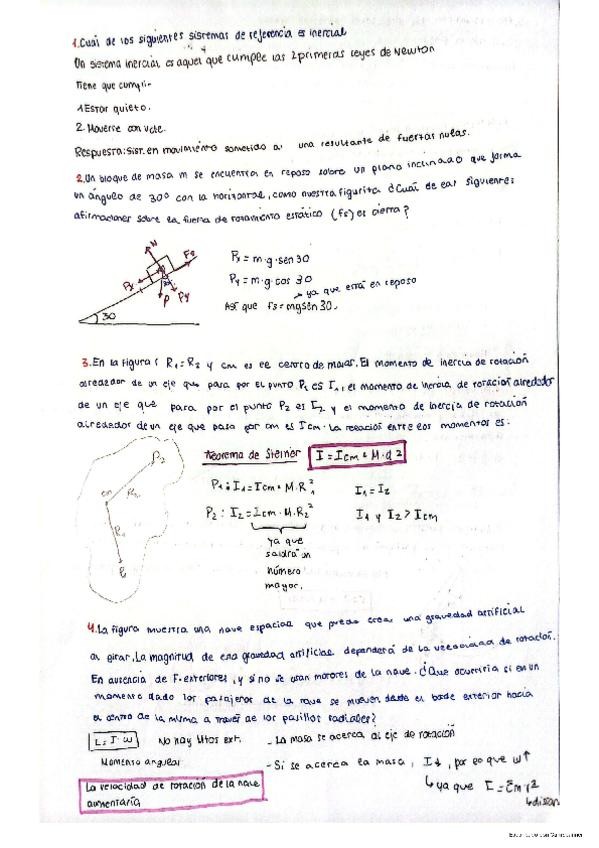 1. Cual de los siguientes sistemas de referencia es inercial
Un sistema inercial es aquel que cumple las 2 primeras leyes de Newton
Tiene que cumplir
1 Estar quieto.
2. Moverse con v cte.
Respuesta: Sist. en movimiento sometido a una resultante de fuerzas nulas.
2. Un bloque de masa m se encuentra en reposo sobre un plano inclinado que forma
un ángulo de 30º con la horizontal, como nuestra figurita ¿Cuál de las siguientes
afirmaciones sobre la fuerza de rozamiento estático (fs) es cierta?
N
Fs
Px
P
Py
30
Px = m·g·sen 30
Py = m·g·cos 30
ya que está en reposo
Así que fs = mgsen 30.
3. En la figura: R1 = R2 y cm es el centro de masas. El momento de inercia de rotación
alrededor de un eje que pasa por el punto P1 es I1, el momento de inercia de rotación alrededor
de un eje que pasa por el punto P2 es I2 y el momento de inercia de rotación
alrededor de un eje que pasa por cm es Icm. La relación entre los momentos es:
P2
cm
R2
R1
Teorema de Steiner I = Icm + M·d²
P1: I1 = Icm + M·R1² I1 = I2
P2: I2 = Icm · M·R2² I1 y I2 > Icm
ya que
saldrá un
número
mayor.
4. La figura muestra una nave espacial que puede crear una gravedad artificial
al girar. La magnitud de esa gravedad artificial dependerá de la velocidad de rotación.
En ausencia de F. exteriores, y si no se usan motores de la nave. ¿Que ocurriría si en un
momento dado los pasajeros de la nave se mueven desde el borde exterior hacia
el centro de la misma a través de los pasillos radiales?
L = I · ω No hay Mtos ext. - La masa se acerca al eje de rotación
Momento angular - Si se acerca la masa, I↓, por lo que ω↑
ya que I = Σm r²
La velocidad de rotación de la nave
aumentaría